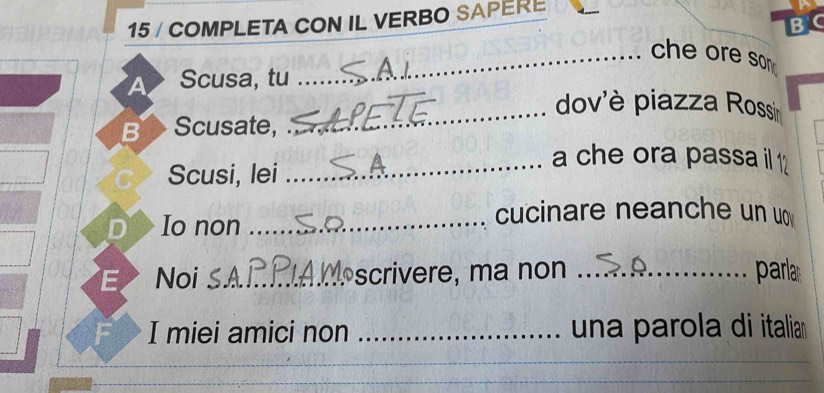 15 / COMPLETA CON IL VERBO SAPERE
B C
A Scusa, tu ...SAI... che ore son
B Scusate, SAPETE dov'è piazza Rossin
C Scusi, lei ...SA... a che ora passa il 12
D Io non ...SO... cucinare neanche un uov
E Noi SAPPIAMO scrivere, ma non ...SO... parlar
F I miei amici non ... una parola di italian